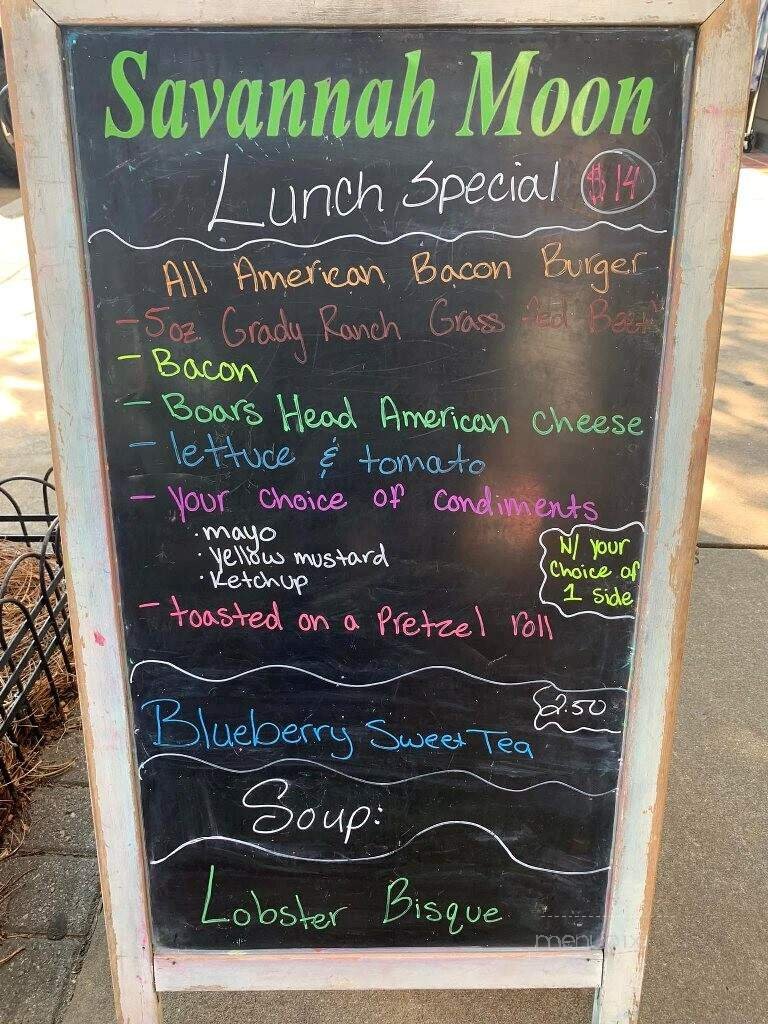 Savannah Moon
Lunch Special $14
All American Bacon Burger
- 5oz Grady Ranch Grass fed Beef
- Bacon
- Boars Head American cheese
- lettuce & tomato
- your choice of condiments
· mayo
· yellow mustard
· Ketchup
W/ your
choice of
1 side
- toasted on a Pretzel roll
Blueberry Sweet Tea 2.50
Soup:
Lobster Bisque
menupix